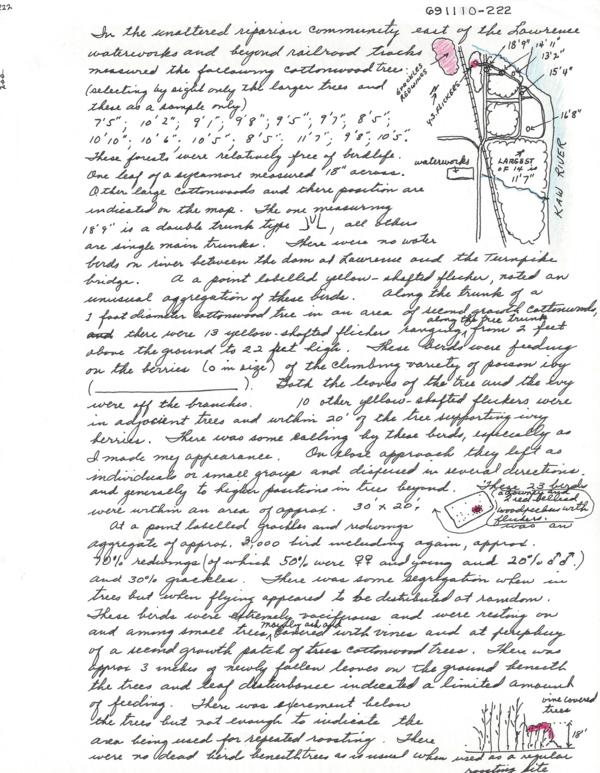 691110-222
In the unaltered riparian community east of the Lawrence
waterworks and beyond railroad tracks
measured the following cottonwood trees:
(selecting by sight only the larger trees and
these as a sample only)
7'5", 10'2", 9'1", 9'8", 9'5", 9'7", 8'5",
10'10", 10'6", 10'5", 8'5", 11'7", 9'8", 10'5".
These forests were relatively free of birdlife.
One leaf of a sycamore measured 18" across.
Other large cottonwoods and there position are
indicated on the map. The one measuring
18'9" is a double trunk type, all others
are single main trunks. There were no water
birds on river between the dam at Lawrence and the Turnpike
bridge. A a point labelled yellow-shafted flicker, noted an
unusual aggregation of these birds. Along the trunk of a
1 foot diameter cottonwood tree in an area of second growth cottonwoods,
and there were 13 yellow-shafted flicker ranging along the tree trunk from 2 feet
above the ground to 22 feet high. These birds were feeding
on the berries (o in size) of the climbing variety of poison ivy
(____________). Both the leaves of the tree and the ivy
were off the branches. 10 other yellow-shafted flickers were
in adjacent trees and within 20' of the tree supporting ivy
berries. There was some calling by these birds, especially as
I made my appearance. On close approach they left as
individuals or small groups and dispersed in several directions
and generally to higher positions in trees beyond. These 23 birds
were within an area of approx. 30 x 20'.
2 red bellied
woodpeckers with
flickers.
At a point labelled grackles and redwings was an
aggregate of approx. 3,000 bird including again, approx.
70% redwings (of which 50% were ♀♀ and young and 20% ♂♂.)
and 30% grackles. There was some segregation when in
trees but when flying appeared to be distributed at random.
These birds were extremely vociferous and were resting on
and among small trees, mostly ash and covered with vines and at periphery
of a second growth patch of trees cottonwood trees. There was
approx 3 inches of newly fallen leaves on the ground beneath
the trees and leaf disturbance indicated a limited amount
of feeding. There was excrement below
the trees but not enough to indicate the
area being used for repeated roosting. There
were no dead bird beneath trees as is usual when used as a regular
roosting site
GRACKLES
REDWINGS
Y-S. FLICKERS
18'9"
14'11"
13'2"
15'4"
16'8"
waterworks
LARGEST
OF 14 is
11'7"
KAW RIVER
vine covered
trees
18'